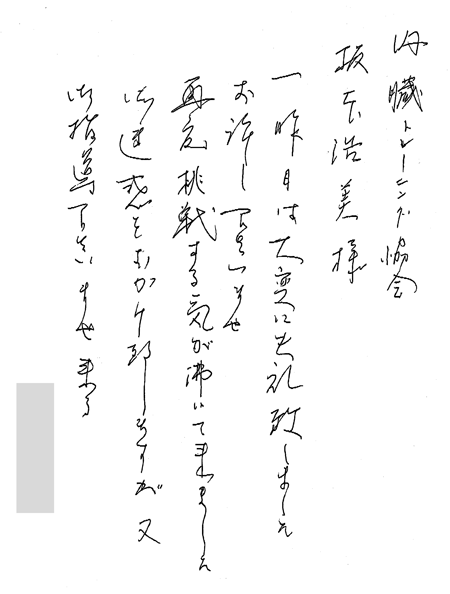 内臓トレーニング協会
坂本浩美様
一昨日は大変に失礼致しました
お許し下さいませ
再度挑戦する気が沸いて来ました
御迷惑をおかけ致しますが又
御指導下さいませ